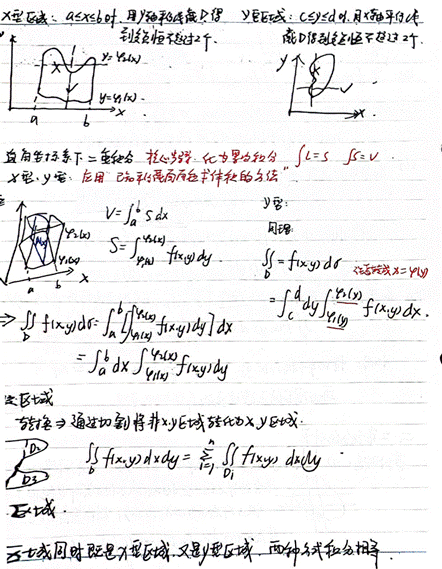 X型区域: a≤x≤b时, 用y轴平行线截D得
到线段恒不超过2个.
Y型区域: c≤y≤d时, 用x轴平行线
截D得到线段恒不超过2个.
y=φ₂(x)
y=φ₁(x)
a b x
y
x
直角坐标系下二重积分 核心步骤: 化为累次积分 ∫L=S ∫S=V
X型, Y型: 应用"已知平行截面面积求体积的方法"
V=∫ₐᵇ S dx
S=∫_{φ₁(x)}^{φ₂(x)} f(x,y)dy
φ₂(x)
φ₁(x)
a b x
Y型:
同理:
∬_D = f(x,y)dσ
注意变成x=φ(y)
=∫_c^d dy∫_{φ₁(y)}^{φ₂(y)} f(x,y)dx.
⇒ ∬_D f(x,y)dσ=∫ₐᵇ[∫_{φ₁(x)}^{φ₂(x)} f(x,y)dy]dx
=∫ₐᵇ dx∫_{φ₁(x)}^{φ₂(x)} f(x,y)dy
区域
转换⇒通过切割将非x,y区域转化为x,y区域.
D₁
D₃
∬_D f(x,y)dxdy=∑_{i=1}^n ∬_{Di} f(x,y)dxdy
区域.
区域同时既是X型区域,又是y型区域,两种方式积分相等.